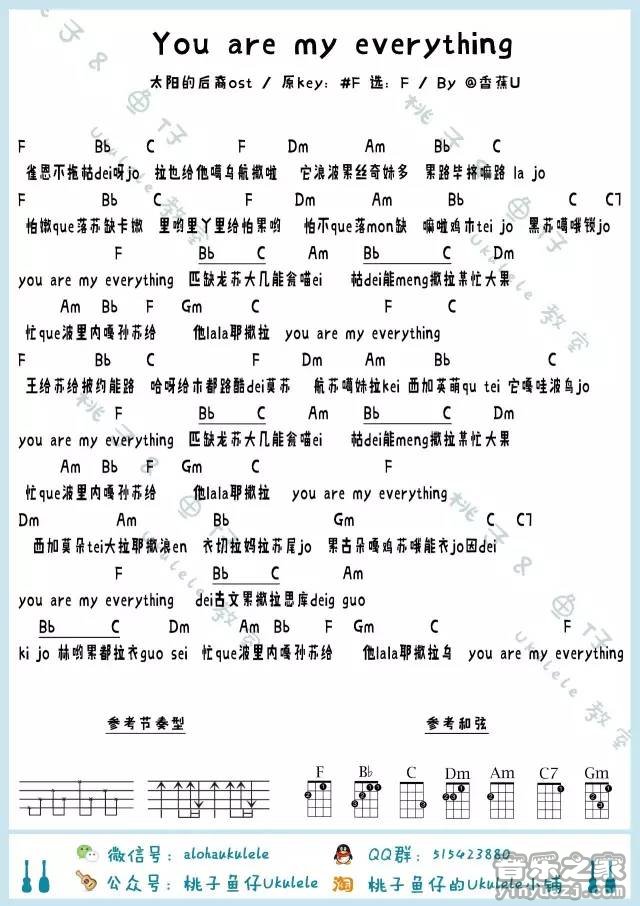 You are my everything
太阳的后裔ost / 原key: #F 选: F / By @香蕉U
F Bb C F Dm Am Bb C
雀恩不拖帖dei呀jo 拉也给他嘎乌航撒啦 它浪波果丝奇妹多 果路毕挤嘛路 la jo
F Bb C F Dm Am Bb C C7
怕嫩que落苏缺卡嫩 里哟里丫里给怕果哟 怕不que落mon缺 嘛啦鸡木tei jo 黑苏噶哦锁jo
F Bb C Am
you are my everything 匹缺龙苏大几能禽喵ei 帖dei能meng撒拉某忙大果
Am Bb F Gm C F
忙que波里内嘎孙苏给 他lala耶撒拉 you are my everything
F Bb C F Dm Am Bb C
王给苏给披约能路 哈呀给木都路酷dei莫苏 航苏噶妹拉kei 西加英萌qu tei 它嘎哇波鸟jo
F Bb C Am Bb C
you are my everything 匹缺龙苏大几能禽喵ei 帖dei能meng撒拉某忙大果
Am Bb F Gm C F
忙que波里内嘎孙苏给 他lala耶撒拉 you are my everything
Dm Am Bb Gm C C7
西加莫朵tei大拉耶撒浪en 衣切拉妈拉苏尾jo 果古朵嘎鸡苏哦能衣jo因dei
F Bb C Am
you are my everything dei古文果撒拉思库deig guo
Bb C Dm Am Bb F Gm C F
ki jo 林哟果都拉衣guo sei 忙que波里内嘎孙苏给 他lala耶撒拉乌 you are my everything
参考节奏型 参考和弦
F Bb C Dm Am C7 Gm
微信号: alohaukulele QQ群: 515423880
公众号: 桃子鱼仔Ukulele 淘 桃子鱼仔的Ukulele小铺
桃子&鱼仔
Ukulele教室
音乐之家
yinyuezj.com